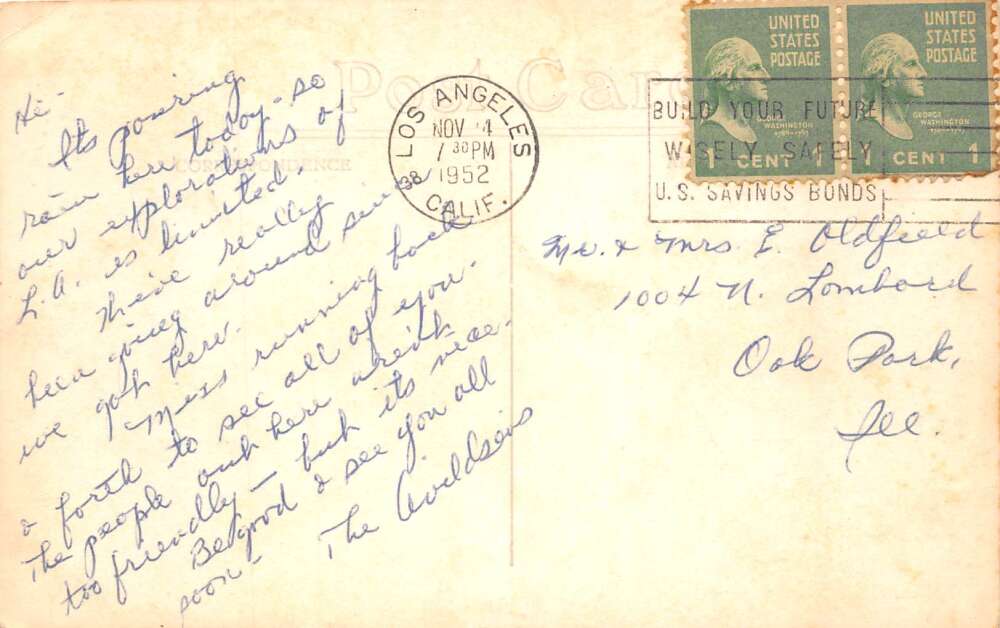 Post Card
CORRESPONDENCE
Hi-
Its pouring
rain here today - so
our explorations of
L.A. is limited.
Have really
been going around since
we got here.
Miss running back
& forth to see all of you.
The people out here aren't
too friendly - but its nice.
Be good & see you all
soon -
The
LOS ANGELES
NOV 4
7 30 PM
1952
38 CALIF.
BUILD YOUR FUTURE
WISELY SAFELY
U.S. SAVINGS BONDS
UNITED
STATES
POSTAGE
GEORGE
WASHINGTON
1 CENT 1
UNITED
STATES
POSTAGE
GEORGE
WASHINGTON
1 CENT 1
Mr. & Mrs. E. Oldfield
1004 N. Lombard
Oak Park,
Ill.